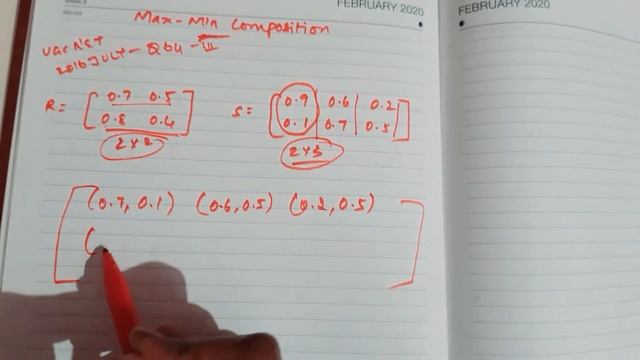 FEBRUARY 2020
FEBRUARY 2020
Max-Min Composition
UGC NET
2016 JULY - Q64 - III
R = [ 0.7 0.5
0.8 0.4 ]
2 x 2
S = [ 0.9 0.6 0.2
0.1 0.7 0.5 ]
2 x 3
[ (0.7, 0.1) (0.6, 0.5) (0.2, 0.5)
( ]